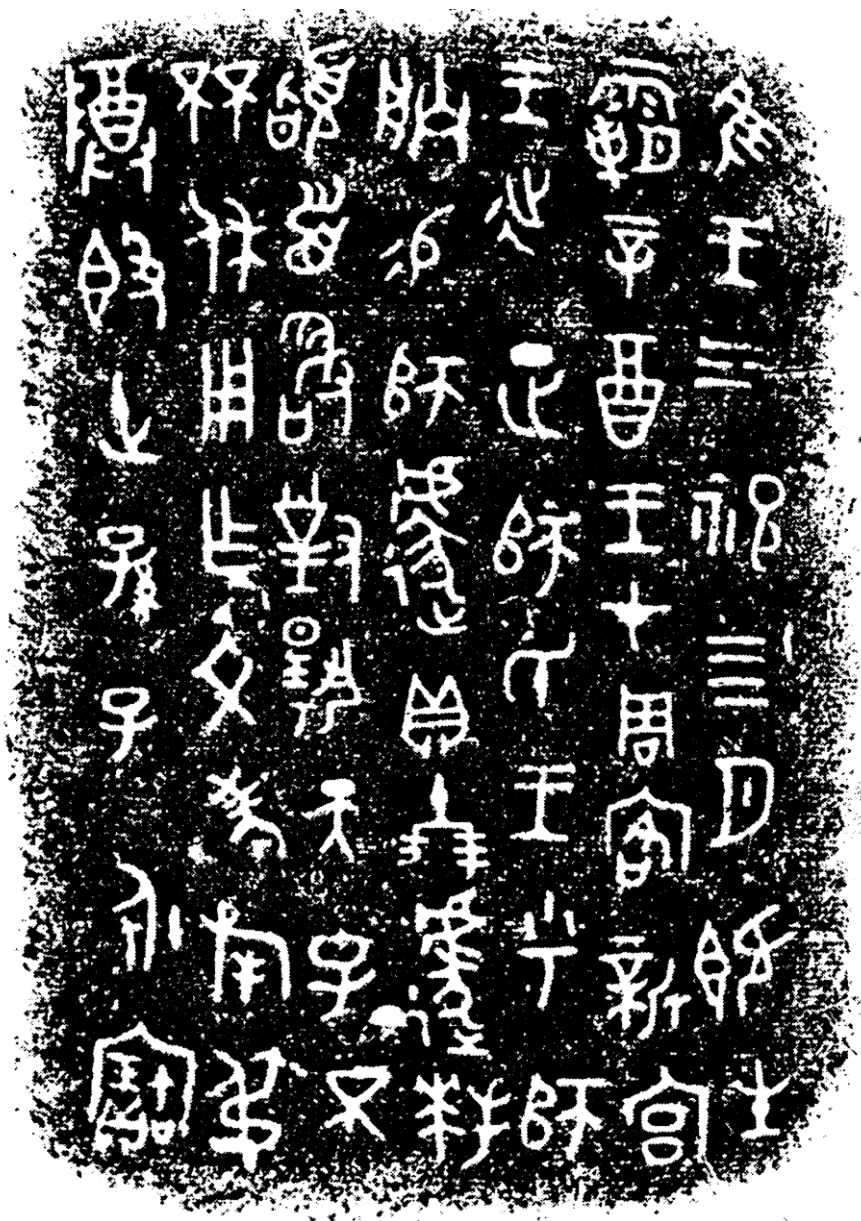 隹王三祀四月既生
霸辛酉王才周客新宮
王𢓊正師氏王乎師
朕易師遽貝十朋遽拜
𩒨首敢對揚天子不
𠀠休用乍文考旄弔
尊𣪘世孫子永寶